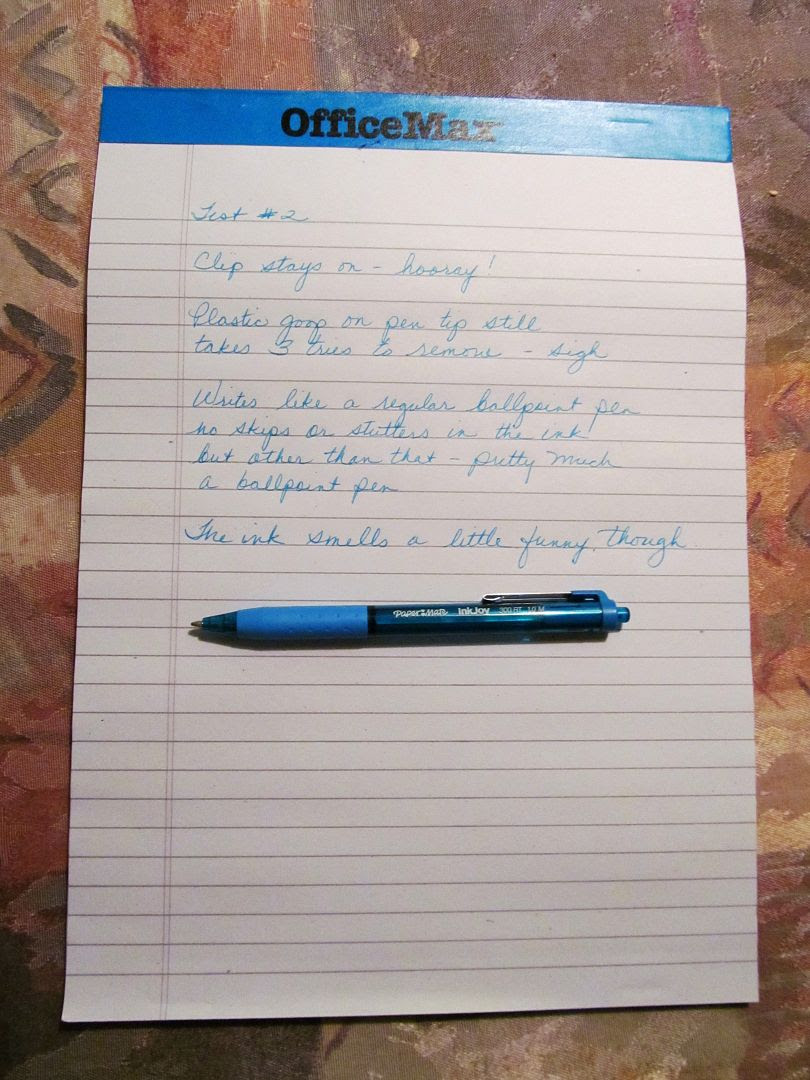 OfficeMax
Test #2
Clip stays on - hooray!
Plastic goop on pen tip still
takes 3 tries to remove - sigh
Writes like a regular ballpoint pen
no skips or stutters in the ink
but other than that - pretty much
a ballpoint pen
The ink smells a little funny, though
Paper:Mate InkJoy 300 RT 1.0 M